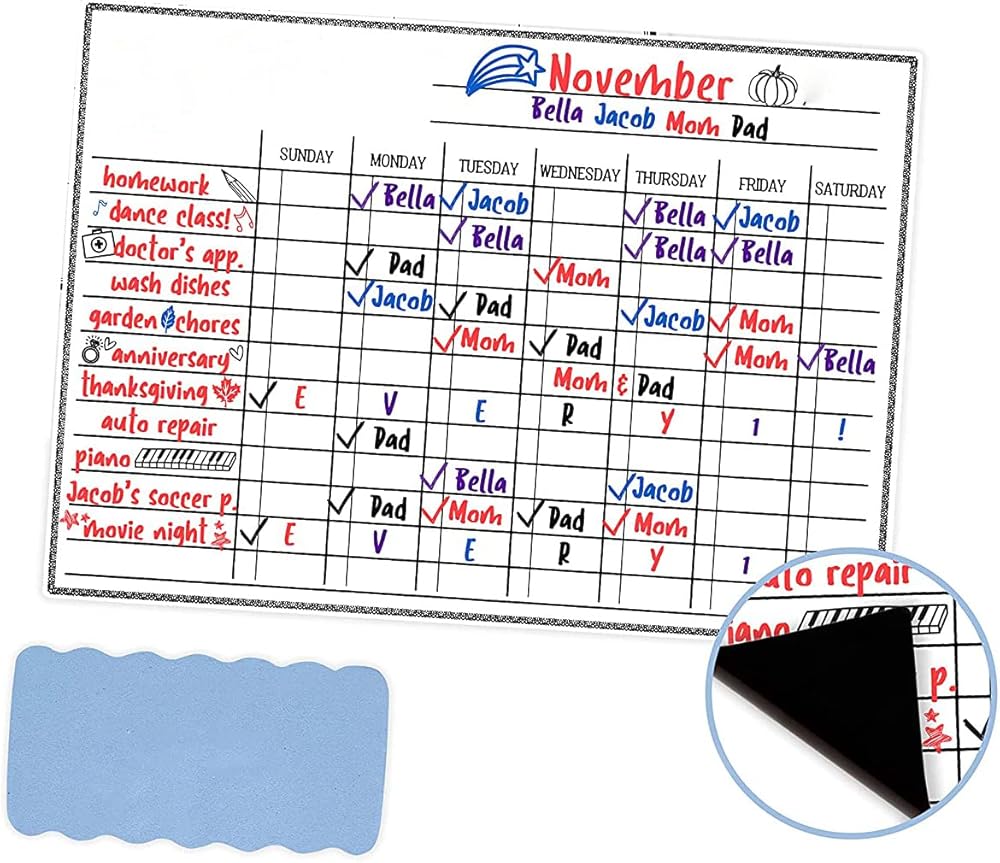 November
Bella Jacob Mom Dad
SUNDAY MONDAY TUESDAY WEDNESDAY THURSDAY FRIDAY SATURDAY
homework ✓ Bella ✓ Jacob ✓ Bella ✓ Jacob
dance class! ✓ Bella ✓ Bella ✓ Bella
doctor's app. ✓ Dad ✓ Mom
wash dishes ✓ Jacob ✓ Dad ✓ Jacob ✓ Mom
garden chores ✓ Mom ✓ Dad ✓ Mom ✓ Bella
anniversary Mom & Dad
thanksgiving ✓ E V E R Y 1 !
auto repair ✓ Dad
piano ✓ Bella ✓ Jacob
Jacob's soccer p. ✓ Dad ✓ Mom ✓ Dad ✓ Mom
movie night ✓ E V E R Y 1
uto repair
iano
p.